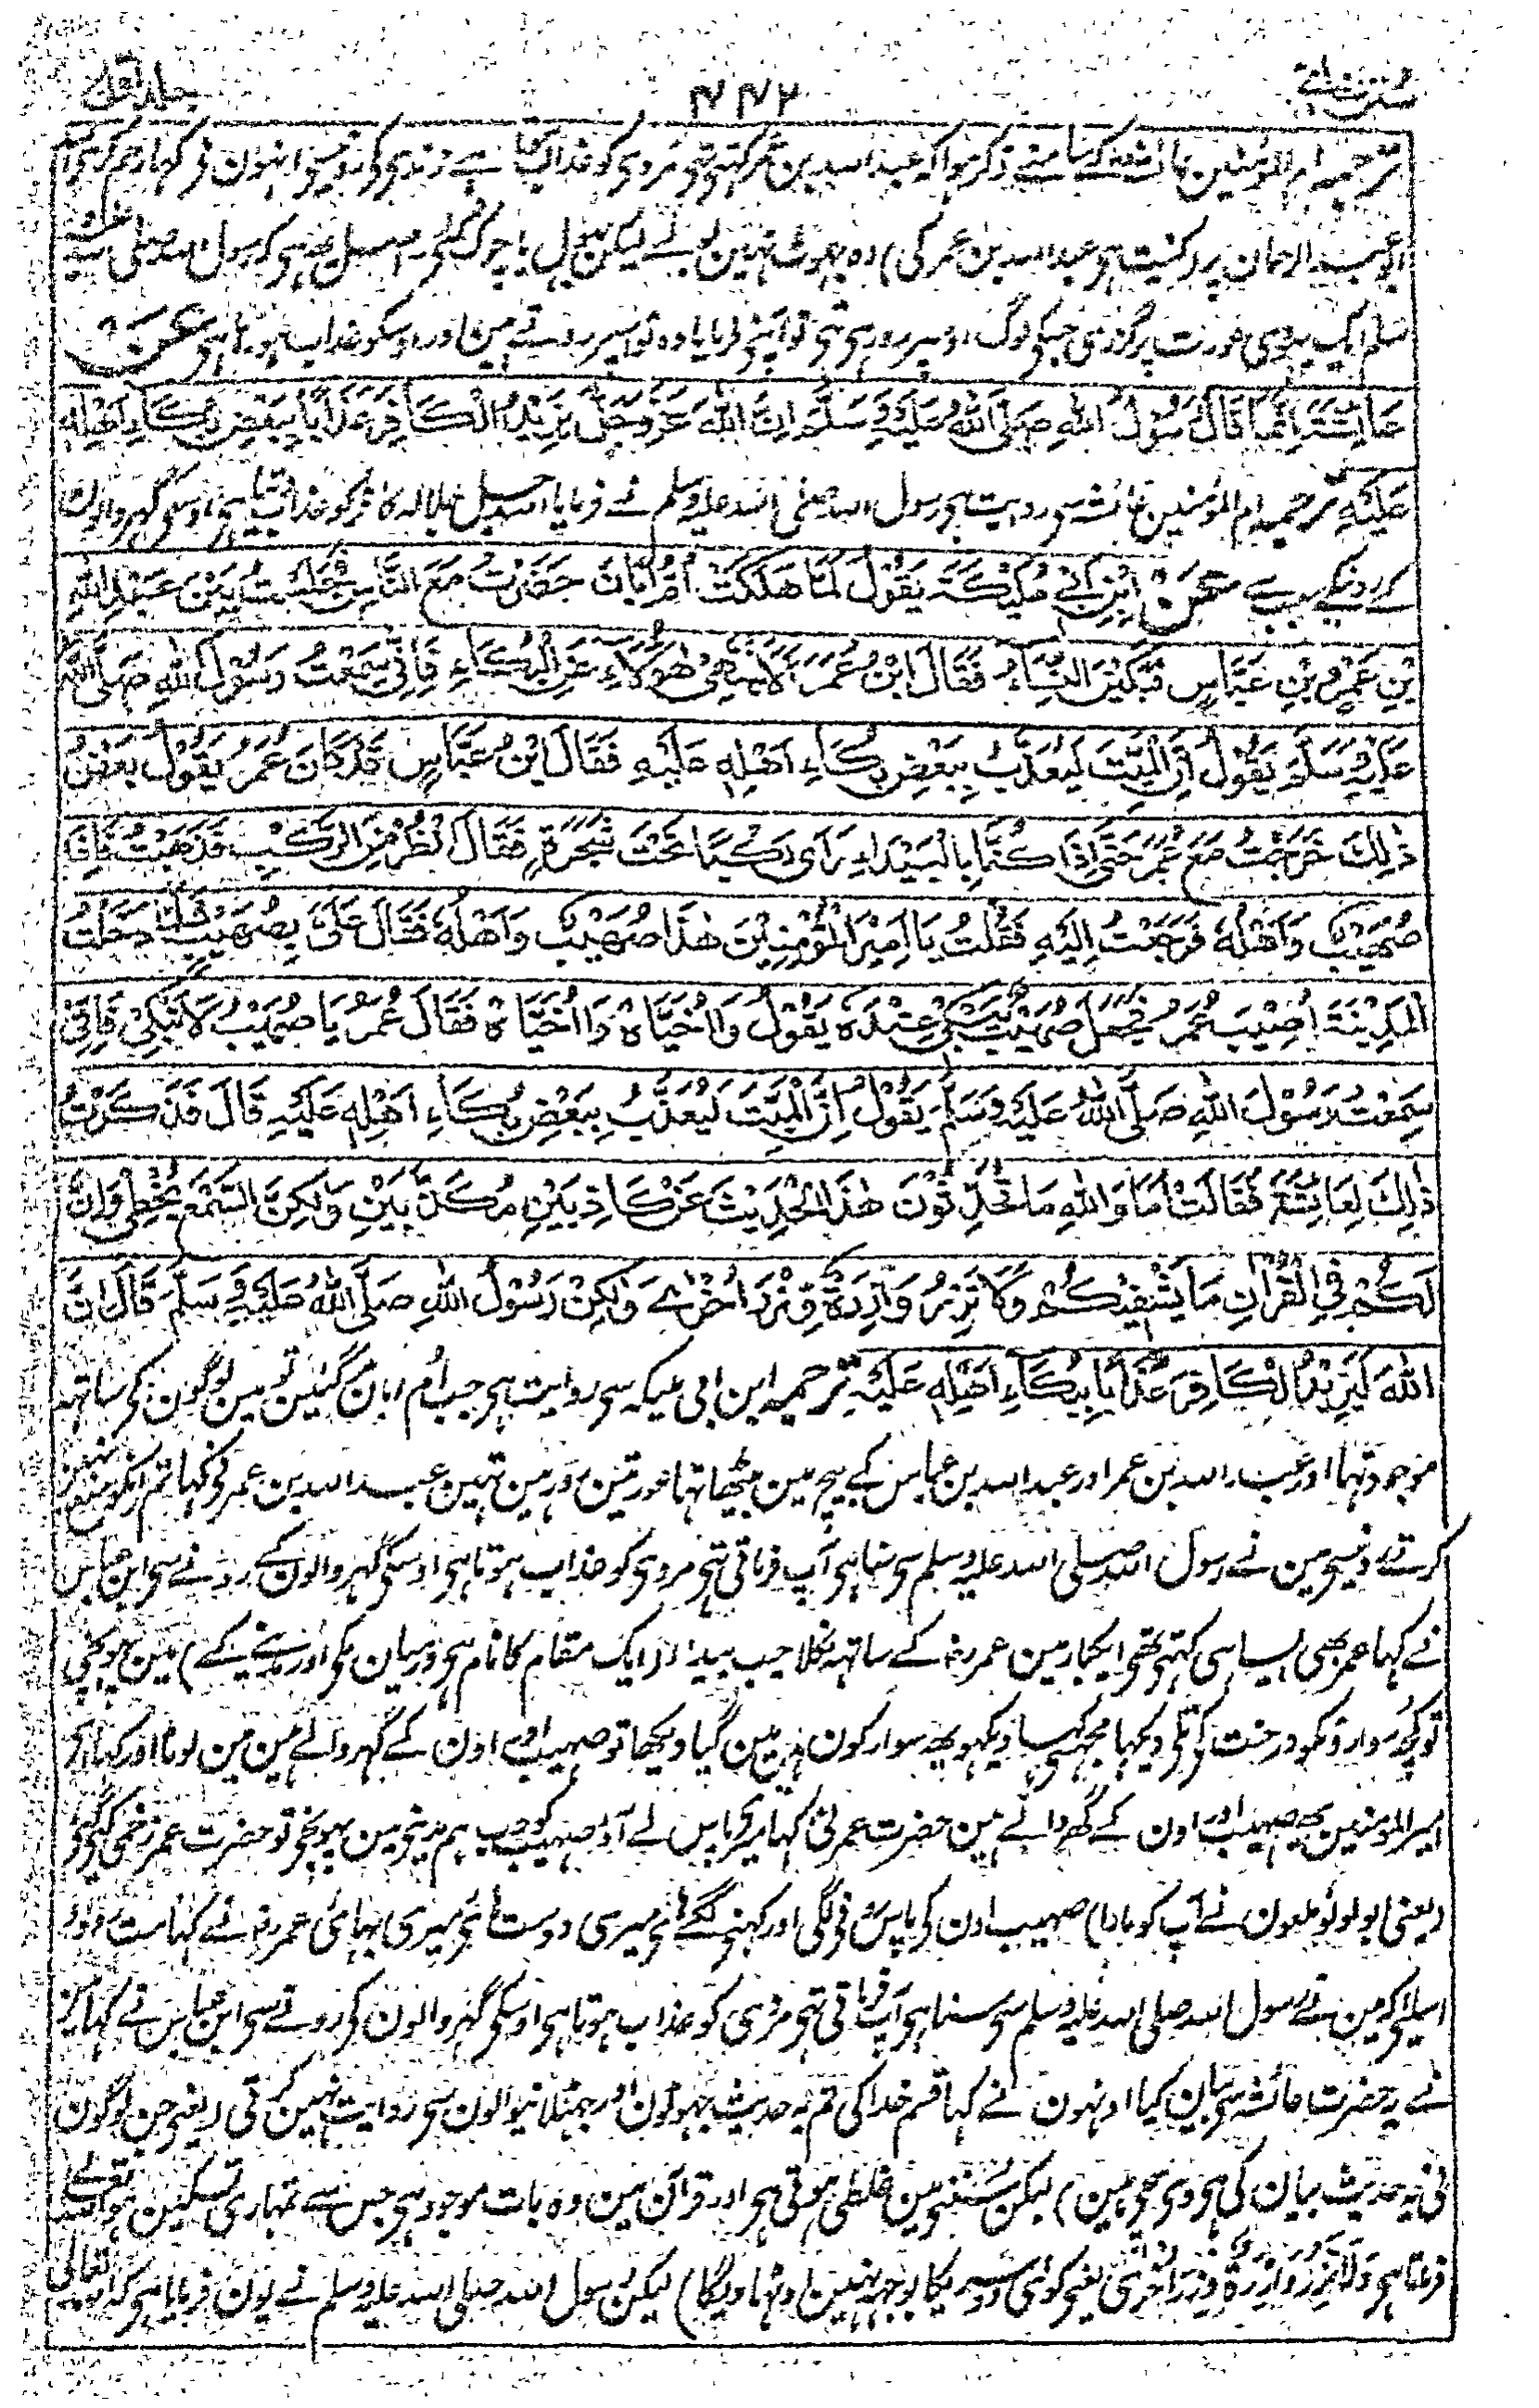 جلد اول ۴۴۲ سنن نسائی
ترجمہ ام المؤمنین عائشہ کے سامنے ذکر ہوا کہ عبداللہ بن عمر کہتے تھے مردی کو عذاب ہوتا ہے زندی کے رونے سے انہوں نے کہا رحم کری اللہ
ابو عبد الرحمان پر (کنیت ہے عبداللہ بن عمر کی) وہ جھوٹ نہین بولے لیکن بھول یا چوک گئے اصل یہ ہی کہ رسول اللہ صلی اللہ علیہ
سلم ایک یہودی عورت پر گذری جسکی لوگ اوسپر رو رہی تھی تو آپنی فرمایا وہ تو اسپر روتے ہین اور اوسکو عذاب ہو رہا ہی عَنْ
عَائِشَةَ اِنَّمَا قَالَ رَسُوْلُ اللهِ صَلَّى اللهُ عَلَيْهِ وَسَلَّمَ اِنَّ اللهَ عَزَّوَجَلَّ يَزِيْدُ الْكَافِرَ عَذَابًا بِبَعْضِ بُكَاءِ اَهْلِهٖ
عَلَيْهِ ترجمہ ام المؤمنین عائشہ سی روایت ہی رسول اللہ صلی اللہ علیہ وسلم نے فرمایا اللہ جل جلالہ کافر کو عذاب اوسکی گھر والون
کے رونیکے سبب سے عَنْ ابْنِ اَبِيْ مُلَيْكَةَ يَقُوْلُ لَمَّا هَلَكَتْ اُمُّ اَبَانَ حَضَرْتُ مَعَ النَّاسِ فَجَلَسْتُ بَيْنَ عَبْدِ اللهِ
بْنِ عُمَرَ وَبْنِ عَبَّاسٍ فَبَكَيْنَ النِّسَاءُ فَقَالَ ابْنُ عُمَرَ اَلَا تَنْهٰى هٰؤُلَاءِ عَنِ الْبُكَاءِ فَاِنِّيْ سَمِعْتُ رَسُوْلَ اللهِ صَلَّى اللهُ
عَلَيْهِ وَسَلَّمَ يَقُوْلُ اِنَّ الْمَيِّتَ لَيُعَذَّبُ بِبَعْضِ بُكَاءِ اَهْلِهٖ عَلَيْهِ فَقَالَ ابْنُ عَبَّاسٍ قَدْ كَانَ عُمَرُ يَقُوْلُ بَعْضَ
ذٰلِكَ خَرَجْتُ مَعَ عُمَرَ حَتّٰى اِذَا كُنَّا بِالْبَيْدَاءِ رَاٰى رَكْبًا تَحْتَ شَجَرَةٍ فَقَالَ انْظُرْ مَنِ الرَّكْبُ فَذَهَبْتُ فَاِذَا
صُهَيْبٌ وَاَهْلُهٗ فَرَجَعْتُ اِلَيْهِ فَقُلْتُ يَا اَمِيْرَ الْمُؤْمِنِيْنَ هٰذَا صُهَيْبٌ وَاَهْلُهٗ فَقَالَ عَلَيَّ بِصُهَيْبٍ فَلَمَّا دَخَلْتُ
الْمَدِيْنَةَ اُصِيْبَ عُمَرُ فَجَعَلَ صُهَيْبٌ يَبْكِيْ عِنْدَهٗ يَقُوْلُ وَا اُخَيَّاهْ وَا اُخَيَّاهْ فَقَالَ عُمَرُ يَا صُهَيْبُ لَا تَبْكِيْ فَاِنِّيْ
سَمِعْتُ رَسُوْلَ اللهِ صَلَّى اللهُ عَلَيْهِ وَسَلَّمَ يَقُوْلُ اِنَّ الْمَيِّتَ لَيُعَذَّبُ بِبَعْضِ بُكَاءِ اَهْلِهٖ عَلَيْهِ قَالَ فَذَكَرْتُ
ذٰلِكَ لِعَائِشَةَ فَقَالَتْ اَمَا وَاللهِ مَا تُحَدِّثُوْنَ هٰذَا الْحَدِيْثَ عَنْ كَاذِبَيْنِ مُكَذَّبَيْنِ وَلٰكِنَّ السَّمْعَ يُخْطِئُ وَاِنَّ
لَكُمْ فِي الْقُرْاٰنِ مَا يَشْفِيْكُمْ وَلَا تَزِرُ وَازِرَةٌ وِّزْرَ اُخْرٰى وَلٰكِنْ رَسُوْلُ اللهِ صَلَّى اللهُ عَلَيْهِ وَسَلَّمَ قَالَ اِنَّ
اللهَ لَيَزِيْدُ الْكَافِرَ عَذَابًا بِبُكَاءِ اَهْلِهٖ عَلَيْهِ ترجمہ ابن ابی ملیکہ سی روایت ہی جب اُم ابان مرگئین تو مین لوگون کی ساتھ
موجود تھا اور عبداللہ بن عمر اور عبداللہ بن عباس کے بیچ مین بیٹھا تھا عورتین رو رہین تہین عبداللہ بن عمر نی کہا تم انکو منع نہین
کرتے رونیسی مین نے رسول اللہ صلی اللہ علیہ وسلم سی سنا ہی آپ فرماتی تہی مردی کو عذاب ہوتا ہی اوسکی گھر والون کے رونے سی ابن عباس
نے کہا عمر بھی ایسا ہی کہتی تھی ایکبار مین عمر رضہ کے ساتھ نکلا جب بیداء (ایک مقام کا نام ہی درمیان مکی اور مدینے کے) مین پہونچی
تو کچھ سوارونکو درخت کی تلی دیکھا مجہسی کہا دیکھو یہ سوار کون ہین مین گیا دیکھا تو صہیب اور اون کے گھر والے ہین مین لوٹا اور کہا ای
امیر المومنین یہ صہیب اور اون کے گھر والے ہین حضرت عمر نی کہا میری پاس لے آؤ صہیب کو جب ہم مدینہ مین پہونچی تو حضرت عمر زخمی کئی گئی
(یعنی ابو لولو ملعون نے آپ کو مارا) صہیب اون کی پاس رونی لگی اور کہنی لگے ہائی میری دوست ہائی میری بہائی عمر رضہ نے کہا مت رو
اسلیی کہ مین نے رسول اللہ صلی اللہ علیہ وسلم سی سنا ہی آپ فرماتی تہی مردی کو عذاب ہوتا ہی اوسکی گھر والون کی رونے سی ابن عباس نے کہا مین
نے یہ حضرت عائشہ سی بیان کیا اونہون نے کہا قسم خدا کی تم یہ حدیث جھوٹون اور جھٹلانیوالون سی روایت نہین کرتی (یعنی جن لوگون
نی یہ حدیث بیان کی ہی وی سچی ہین) لیکن سننی مین غلطی ہوتی ہی اور قرآن مین وہ بات موجود ہی جس سے تمہاری تسکین ہو اللہ تعالے
فرماتا ہی وَلَا تَزِرُ وَازِرَةٌ وِّزْرَ اُخْرٰى یعنی کوئی دوسریکا بوجھ نہین اوٹھاویگا) لیکن رسول اللہ صلی اللہ علیہ وسلم نے یون فرمایا ہی کہ اللہ تعالی